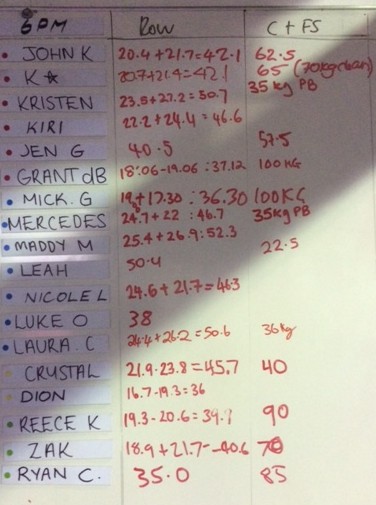 6PM Row C + FS
JOHN K 20.4 + 21.7 = 42.1 62.5
K☆ 20.7 + 21.4 = 42.1 65 (70kg clean)
KRISTEN 23.5 + 27.2 = 50.7 35 kg PB
KIRI 22.2 + 24.4 = 46.6
JEN G 40.5 57.5
GRANT dB 18.06 - 19.06 : 37.12 100 KG
MICK. G 19 + 17.30 : 36.30 100KG
MERCEDES 24.7 + 22 : 46.7 35kg PB
MADDY M 25.4 + 26.9 : 52.3 22.5
LEAH 50.4
NICOLE L 24.6 + 21.7 = 46.3
LUKE O 38
LAURA. C 24.4 + 26.2 = 50.6 36kg
CRYSTAL 21.9 - 23.8 = 45.7 40
DION 16.7 - 19.3 = 36
REECE K 19.3 - 20.6 = 39.9 90
ZAK 18.9 + 21.7 - 40.6 70
RYAN C. 35.0 85